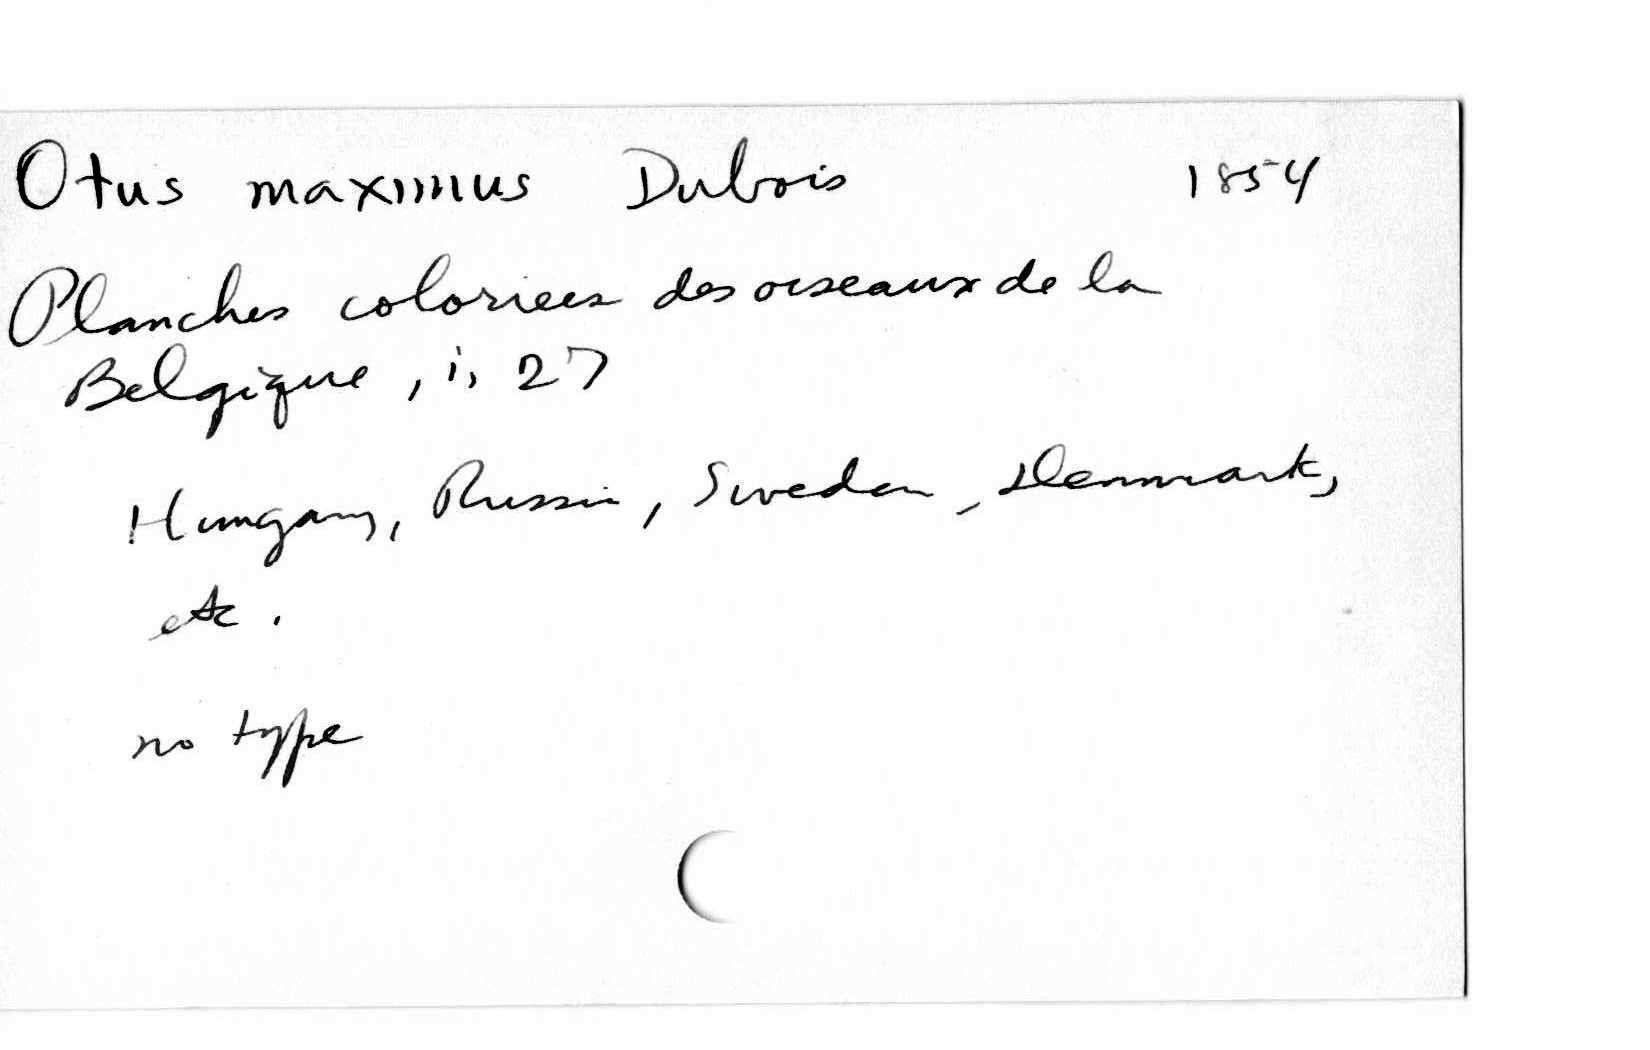 Otus maximus Dubois 1854
Planches coloriees des oiseaux de la
Belgique, i, 27
Hungary, Russia, Sweden, Denmark,
etc.
no type